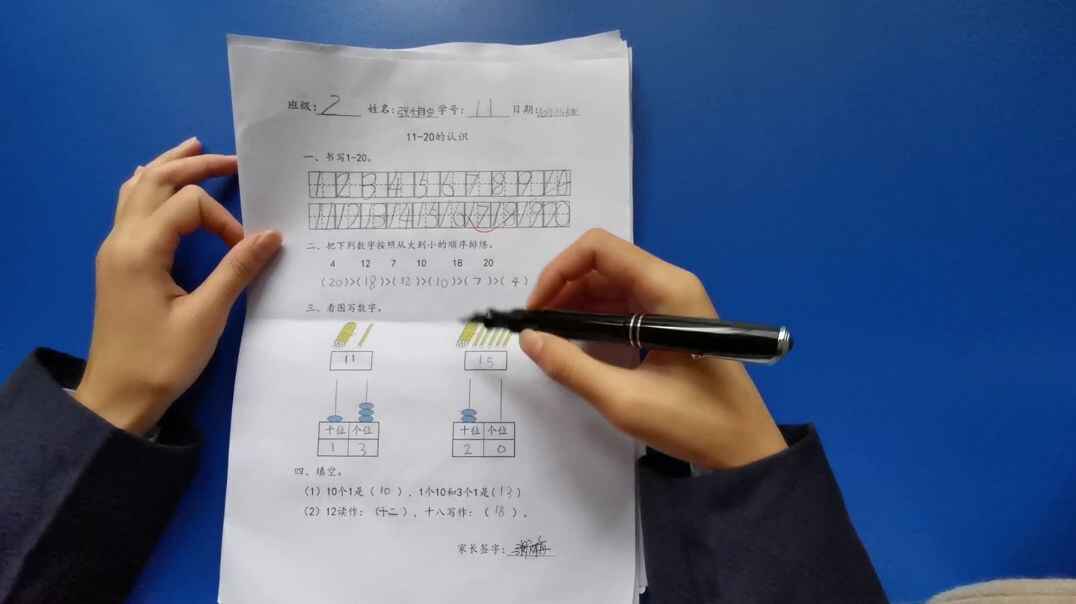 班级: 2 姓名: 学号: 11 日期:
11-20的认识
一、书写1-20。
1 2 3 4 5 6 7 8 9 10
11 12 13 14 15 16 17 18 19 20
二、把下列数字按照从大到小的顺序排练。
4 12 7 10 18 20
(20)>(18)>(12)>(10)>(7)>(4)
三、看图写数字。
11 15
十位 个位 十位 个位
1 3 2 0
四、填空。
(1) 10个1是(10)、1个10和3个1是(13)
(2) 12读作:(十二)、十八写作:(18)。
家长签字: